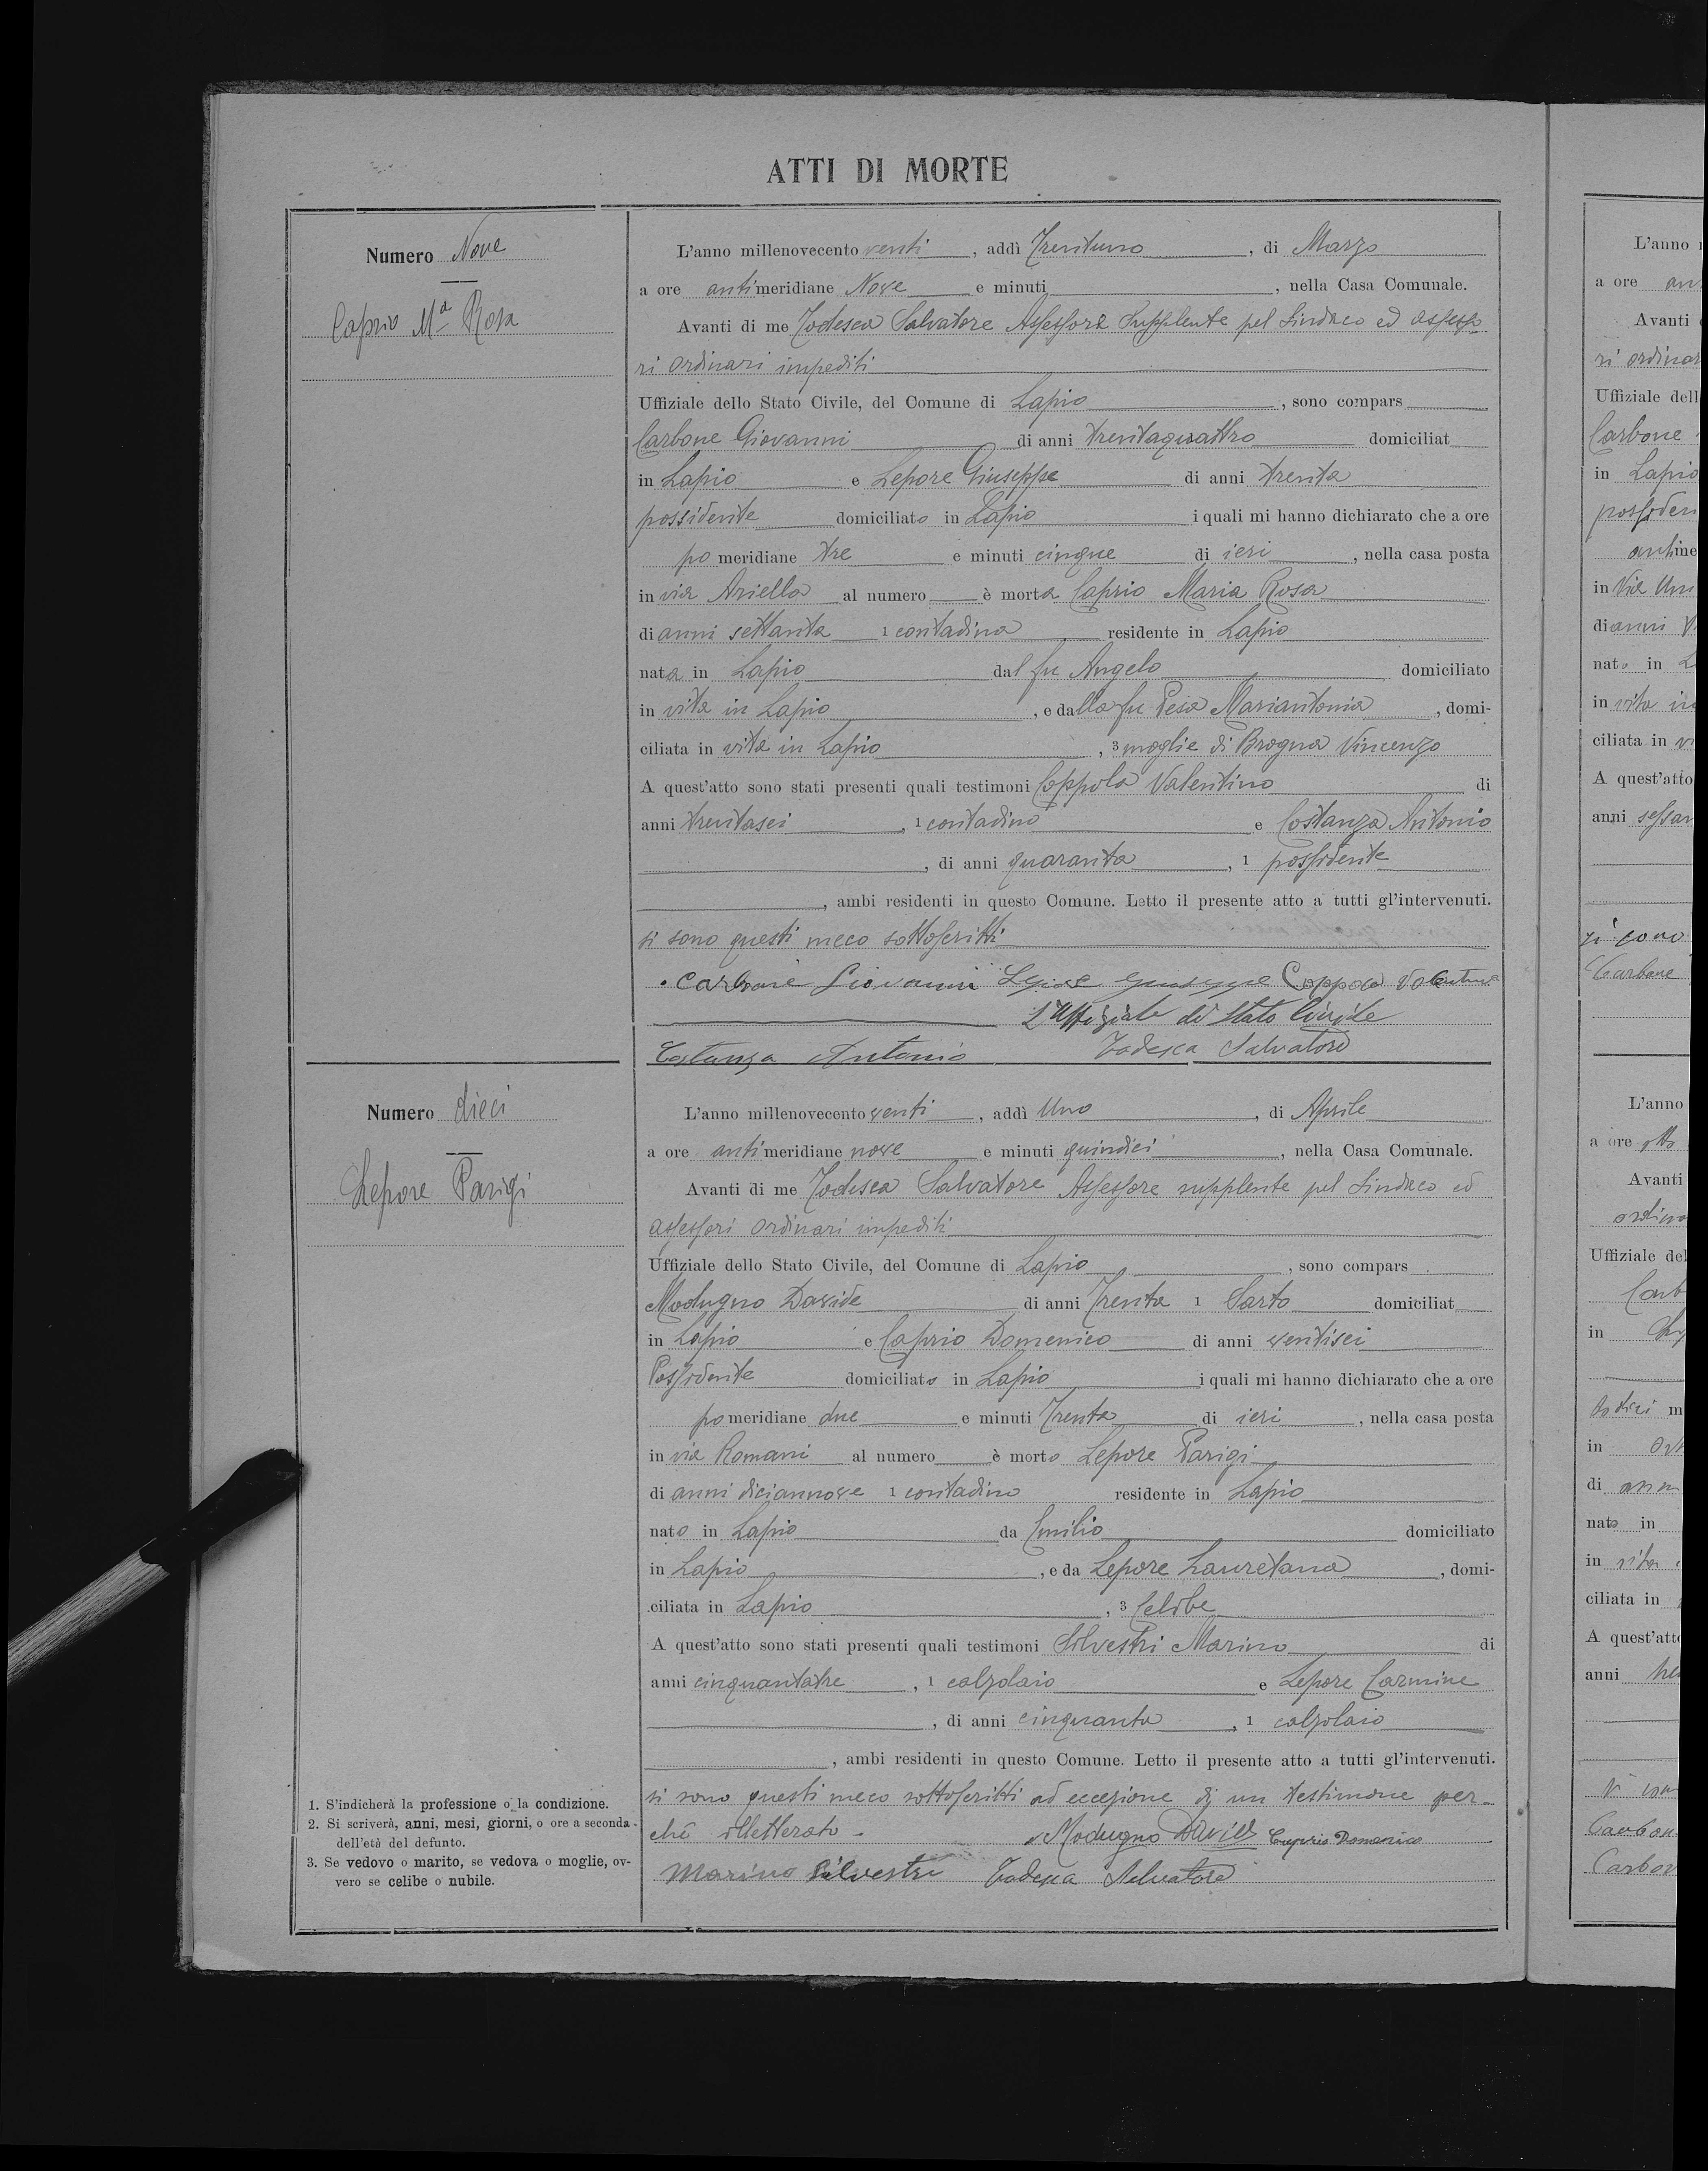 ATTI DI MORTE
Numero Nove
Caprio Mª Rosa
L'anno millenovecento venti, addì Trentuno, di Marzo
a ore antimeridiane Nove e minuti, nella Casa Comunale.
Avanti di me Todesca Salvatore Assessore Supplente pel Sindaco ed assesso
ri ordinari impediti
Uffiziale dello Stato Civile, del Comune di Lapio, sono compars
Carbone Giovanni di anni trentaquattro domiciliat
in Lapio e Lepore Giuseppe di anni trenta
possidente domiciliato in Lapio i quali mi hanno dichiarato che a ore
pomeridiane tre e minuti cinque di ieri, nella casa posta
in via Ariella al numero è morta Caprio Maria Rosa
di anni settanta 1 contadina residente in Lapio
nata in Lapio dal fu Angelo domiciliato
in vita in Lapio, e dalla fu Pesa Mariantonia, domi-
ciliata in vita in Lapio, 3 moglie di Brogna Vincenzo
A quest'atto sono stati presenti quali testimoni Coppola Valentino di
anni trentasei, 1 contadino e Costanza Antonio
, di anni quaranta, 1 possidente
, ambi residenti in questo Comune. Letto il presente atto a tutti gl'intervenuti.
si sono questi meco sottoscritti
Carbone Giovanni Lepore Giuseppe Coppola Valentino
L'Uffiziale di Stato Civile
Costanza Antonio Todesca Salvatore
Numero dieci
Lepore Parigi
L'anno millenovecento venti, addì Uno, di Aprile
a ore antimeridiane nove e minuti quindici, nella Casa Comunale.
Avanti di me Todesca Salvatore Assessore supplente pel Sindaco ed
assessori ordinari impediti
Uffiziale dello Stato Civile, del Comune di Lapio, sono compars
Modugno Davide di anni Trenta 1 Sarto domiciliat
in Lapio e Caprio Domenico di anni ventisei
Possidente domiciliato in Lapio i quali mi hanno dichiarato che a ore
pomeridiane due e minuti Trenta di ieri, nella casa posta
in via Romani al numero è morto Lepore Parigi
di anni diciannove 1 contadino residente in Lapio
nato in Lapio da Emilio domiciliato
in Lapio, e da Lepore Lauretana, domi-
ciliata in Lapio, 3 Celibe
A quest'atto sono stati presenti quali testimoni Silvestri Marino di
anni cinquantatre, 1 calzolaio e Lepore Carmine
, di anni cinquanta, 1 calzolaio
, ambi residenti in questo Comune. Letto il presente atto a tutti gl'intervenuti.
si sono questi meco sottoscritti ad eccezione di un testimone per-
chè illetterato - Modugno Davide Caprio Domenico
Marino Silvestri Todesca Salvatore
1. S'indicherà la professione o la condizione.
2. Si scriverà, anni, mesi, giorni, o ore a seconda
dell'età del defunto.
3. Se vedovo o marito, se vedova o moglie, ov-
vero se celibe o nubile.
L'anno
a ore
Avanti
ri ordinar
Uffiziale dell
Carbone
in Lapio
possiden
antime
in Via
di anni
nato in
in vita in
ciliata in
A quest'atto
anni sessan
si sono
Carbone
L'anno
a ore otto
Avanti
Uffiziale del
Carb
in
in
di
nato in
in vita
ciliata in
A quest'atto
anni
Carbon
Carbon